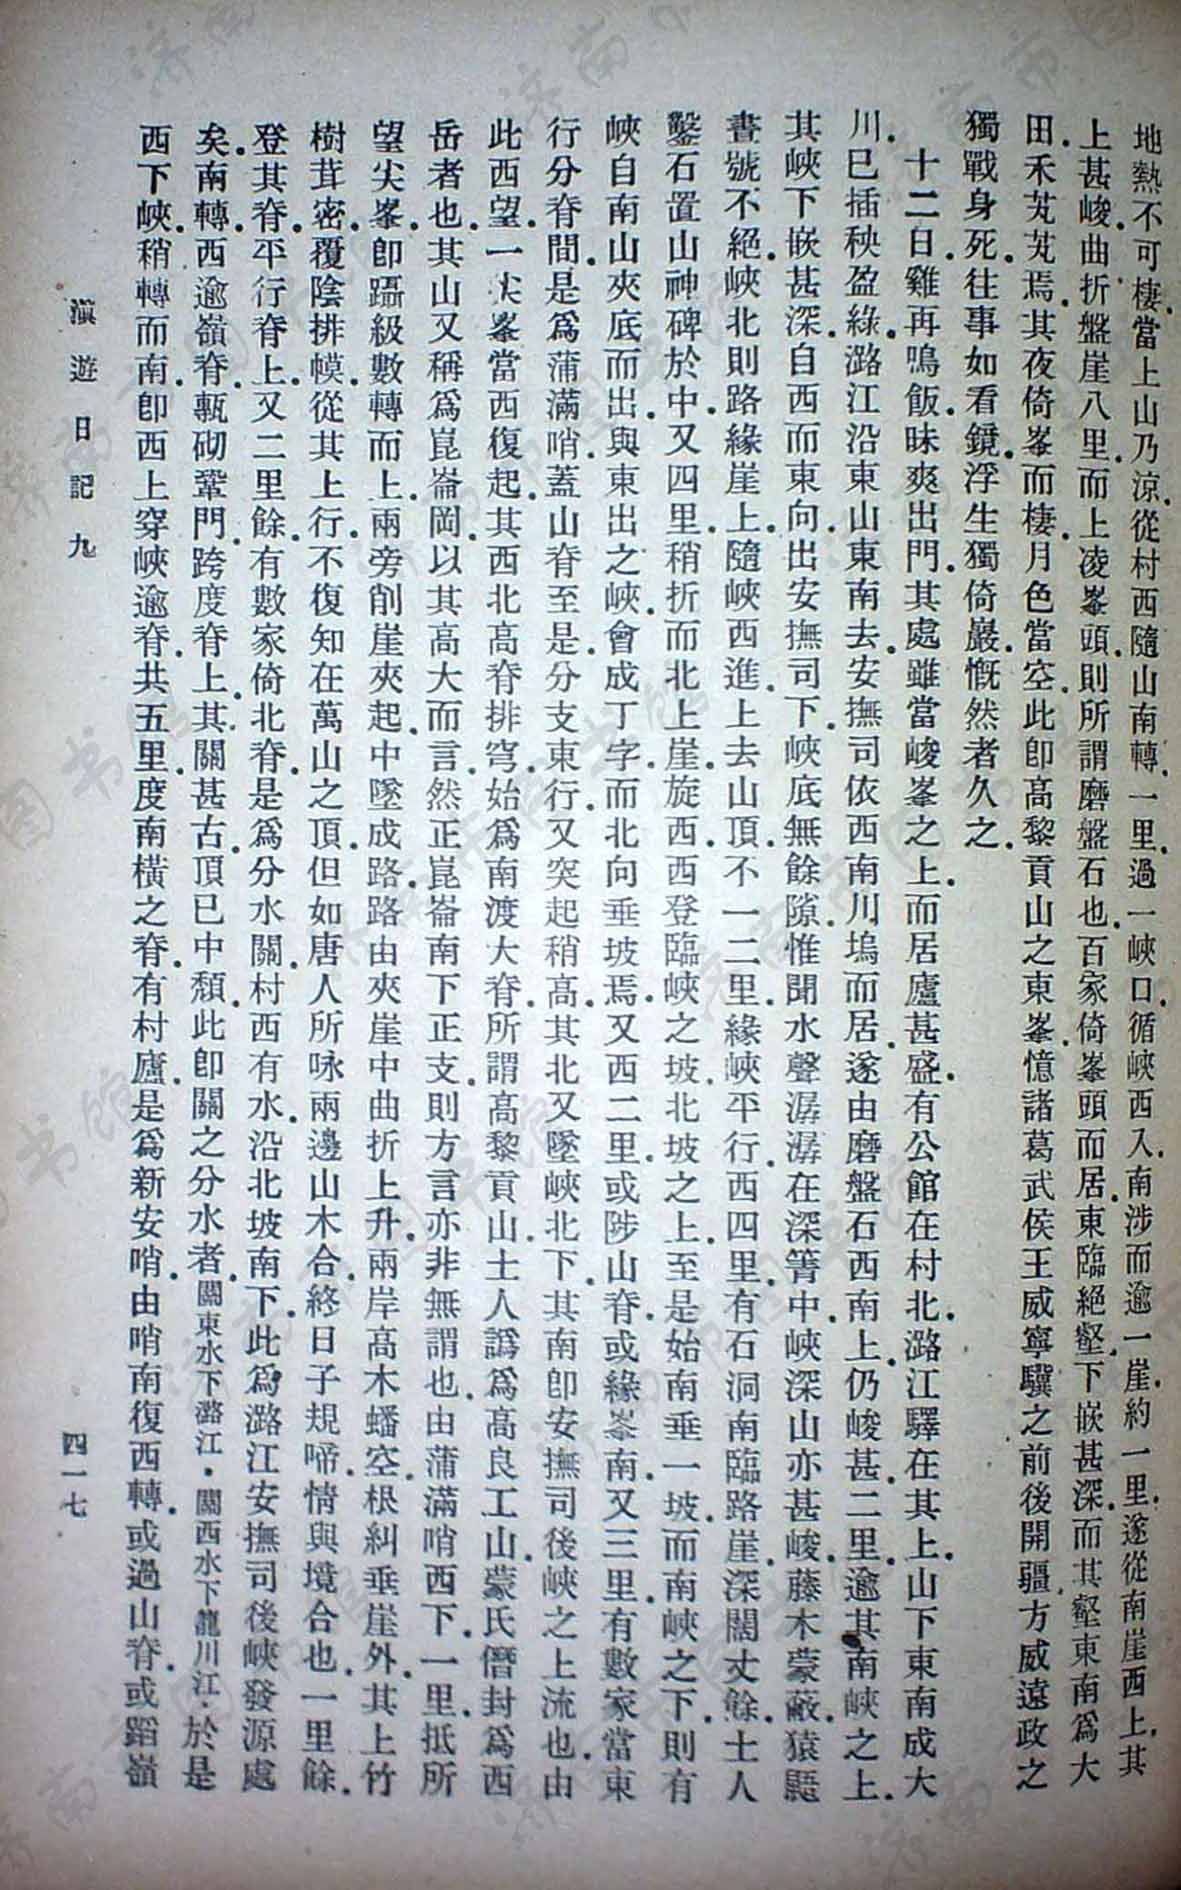 地熱不可棲.當上山乃涼.從村西隨山南轉.一里.過一峽口.循峽西入.南涉而逾一崖.約一里.遂從南崖西上.其
上甚峻.曲折盤崖八里.而上凌峯頭.則所謂磨盤石也.百家倚峯頭而居.東臨絕壑.下嵌甚深.而其壑東南爲大
田.禾芃芃焉.其夜倚峯而棲.月色當空.此即高黎貢山之東峯.憶諸葛武侯王威寧驥之前後開疆.方威遠政之
獨戰身死.往事如看鏡.浮生獨倚巖.慨然者久之.
十二日.雞再鳴.飯.昧爽出門.其處雖當峻峯之上.而居廬甚盛.有公館在村北.潞江驛在其上.山下東南成大
川.已插秧盈綠.潞江沿東山東南去.安撫司依西南川塢而居.遂由磨盤石西南上.仍峻甚.二里.逾其南峽之上.
其峽下嵌甚深.自西而東向.出安撫司下.峽底無餘隙.惟聞水聲潺潺在深箐中.峽深山亦甚峻.藤木蒙蔽.猿鼯
晝號不絕.峽北則路緣崖上.隨峽西進.上去山頂.不一二里.緣峽平行西四里.有石洞南臨路崖.深闊丈餘.土人
鑿石置山神碑於中.又四里.稍折而北上崖.旋西.西登臨峽之坡.北坡之上.至是始南垂一坡.而南峽之下.則有
峽自南山夾底而出.與東出之峽.會成丁字.而北向垂坡焉.又西二里.或陟山脊.或緣峯南.又三里.有數家當東
行分脊間.是爲蒲滿哨.蓋山脊至是分支東行.又突起稍高.其北又墜峽北下.其南即安撫司後峽之上流也.由
此西望.一尖峯當西復起.其西北高脊排穹.始爲南渡大脊.所謂高黎貢山.土人譌爲高良工山.蒙氏僭封爲西
岳者也.其山又稱爲崑崙岡.以其高大而言.然正崑崙南下正支.則方言亦非無謂也.由蒲滿哨西下.一里.抵所
望尖峯.即躡級數轉而上.兩旁削崖夾起.中墜成路.路由夾崖中曲折上升.兩岸高木蟠空.根糾垂崖外.其上竹
樹茸密.覆陰排幙.從其上行.不復知在萬山之頂.但如唐人所咏兩邊山木合.終日子規啼.情與境合也.一里餘.
登其脊.平行脊上.又二里餘.有數家倚北脊.是爲分水關.村西有水.沿北坡南下.此爲潞江安撫司後峽發源處
矣.南轉.西逾嶺脊.甎砌鞏門.跨度脊上.其關甚古.頂已中頹.此即關之分水者.關東水下潞江.關西水下龍川江.於是
西下峽.稍轉而南.即西上穿峽逾脊.共五里.度南橫之脊.有村廬.是爲新安哨.由哨南復西轉.或過山脊.或蹈嶺
滇遊日記九
四一七